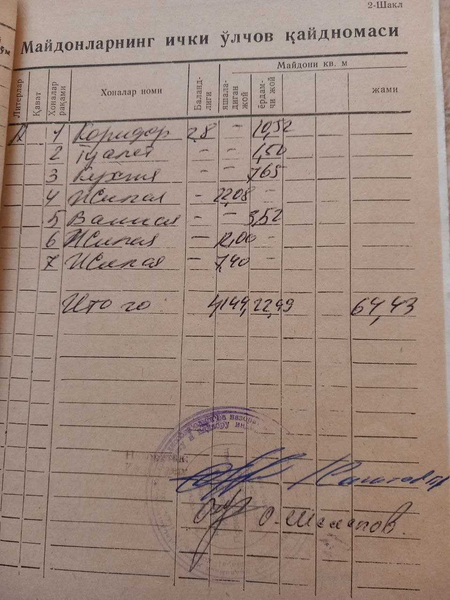 2-Шакл
Майдонларнинг ички ўлчов қайдномаси
Литерлар
Қават
Хоналар рақами
Хоналар номи
Баланд-лиги
Майдони кв. м
яшала-диган жой
ёрдам-чи жой
жами
1 Коридор 2,8 – 10,52
2 Туалет – – 1,50
3 Кухня – – 7,65
4 Жилая – 22,08 –
5 Ванная – – 3,52
6 Жилая – 12,00 –
7 Жилая – 7,40 –
Итого 41,44 22,99 64,43